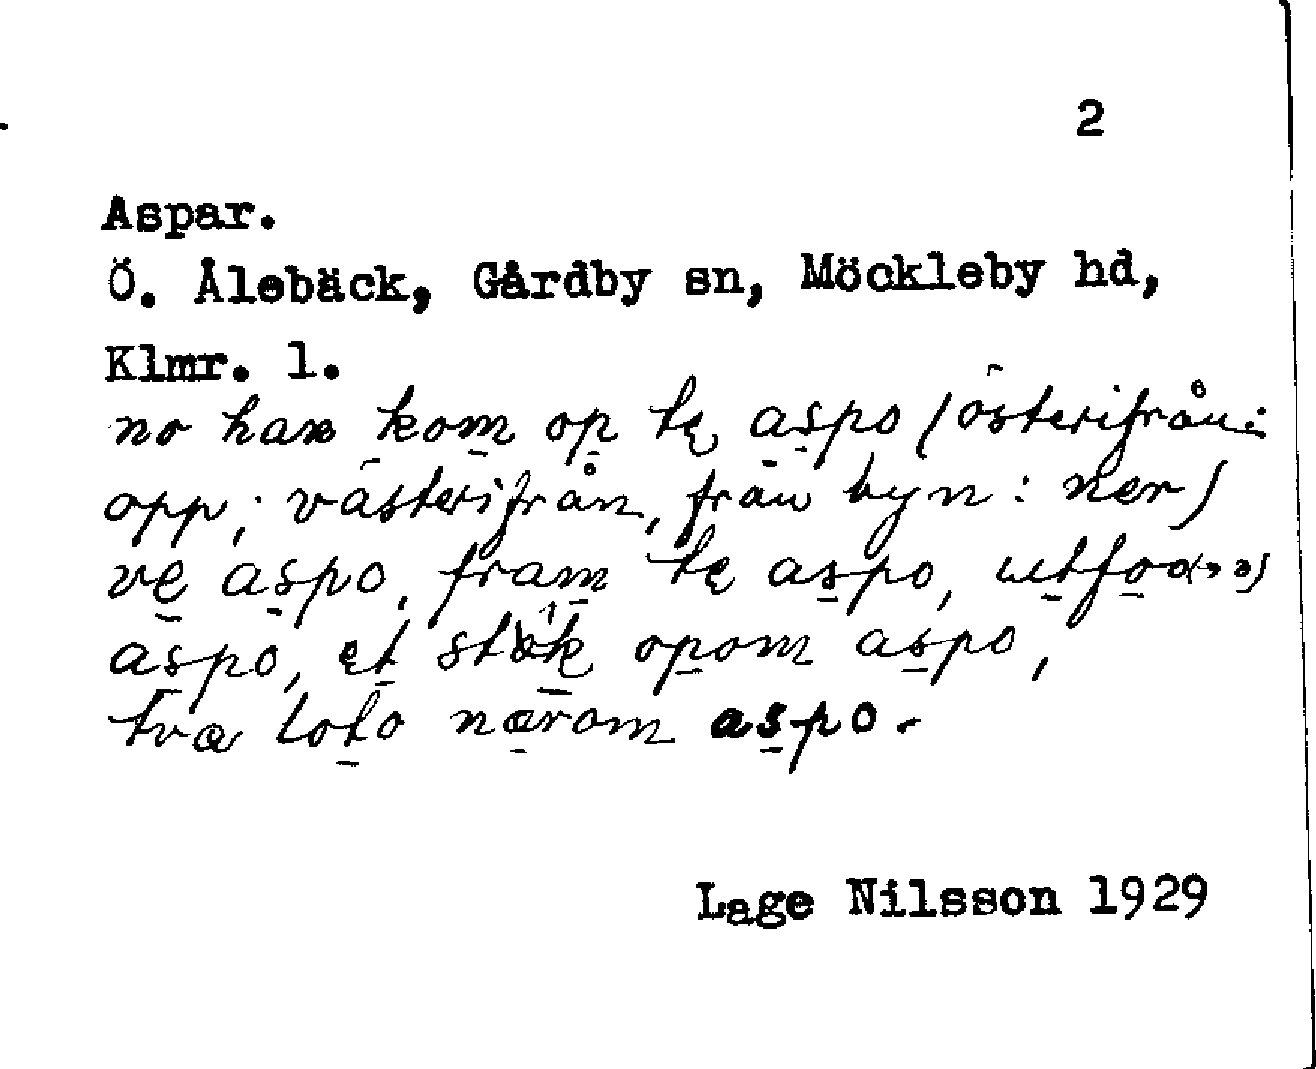 2
Aspar.
Ö. Ålebäck, Gårdby sn, Möckleby hd,
Klmr. l.
no han kom op tę aspo (österifrån:
opp; västerifrån, från byn: ner)
ve aspo, fram tę aspo, utfo
aspo, ęt opom aspo,
tvæ loto nærom aspo.
Lage Nilsson 1929